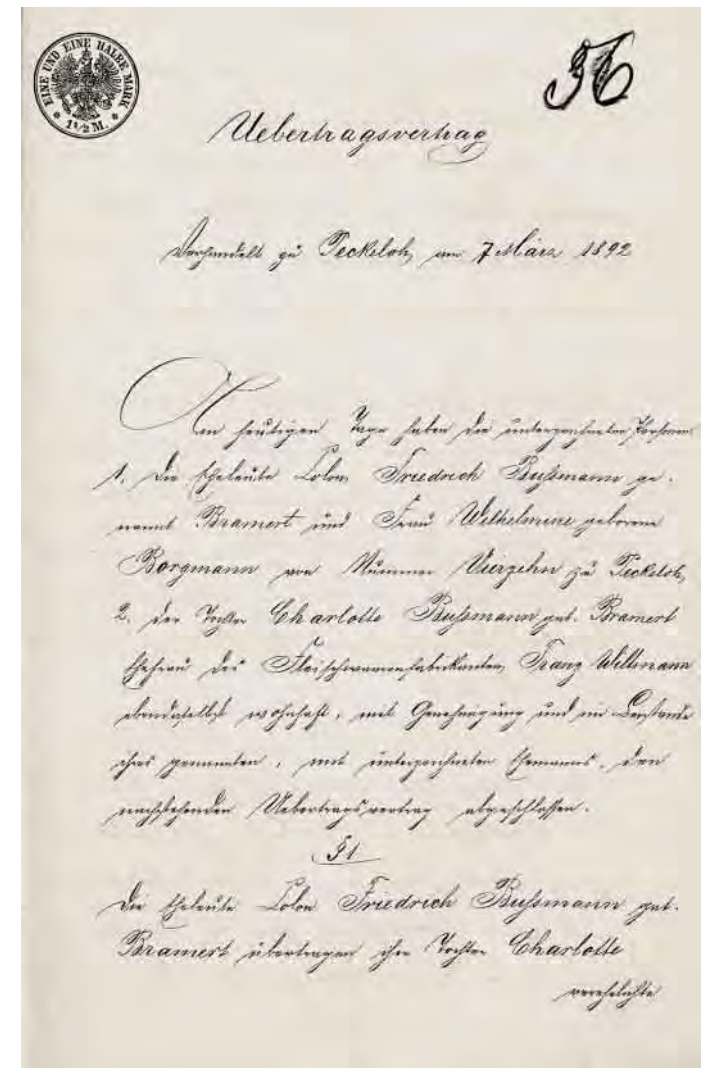 EINE UND EINE HALBE MARK
* 1½ M. *
56
Uebertragsvertrag
Verhandelt zu Peckeloh, am 7 März 1892
Am heutigen Tage haben die unterzeichneten Personen:
1. Die Eheleute Colon Friedrich Bußmann ge-
nannt Bramert und Frau Wilhelmine geborene
Borgmann von Nummer Vierzehn zu Peckeloh,
2. der Tochter Charlotte Bußmann gnt. Bramert
Ehefrau des Fleischwarenfabrikanten, Franz Wiltmann
ebendaselbst wohnhaft, mit Genehmigung und im Beistande
ihres genannten, mit unterzeichneten Ehemanns, den
nachstehenden Uebertragsvertrag abgeschlossen.
§1
Die Eheleute Colon Friedrich Bußmann gnt.
Bramert übertragen ihre Tochter Charlotte
verehelichte